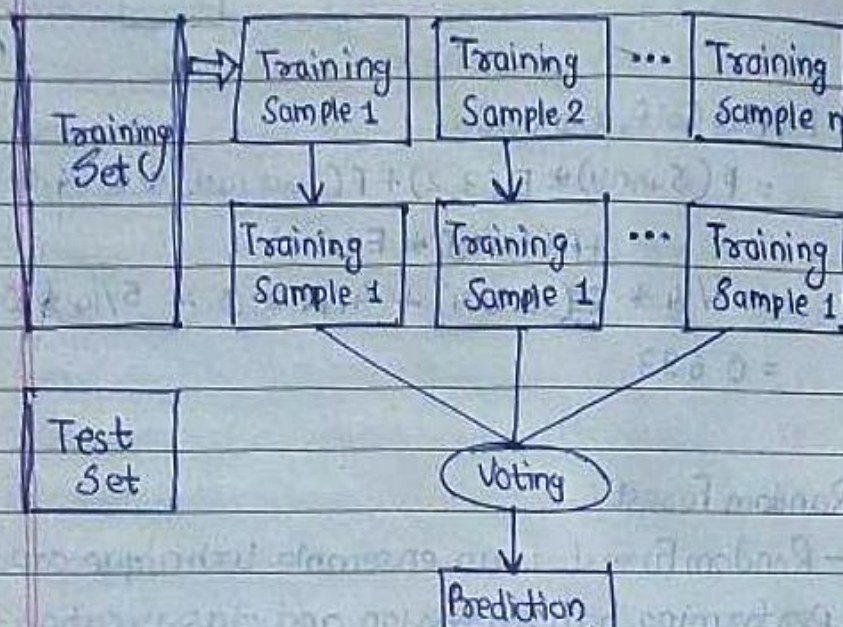 Training
Set
Training
Sample 1
Training
Sample 2
...
Training
Sample n
Training
Sample 1
Training
Sample 1
...
Training
Sample 1
Test
Set
Voting
Prediction